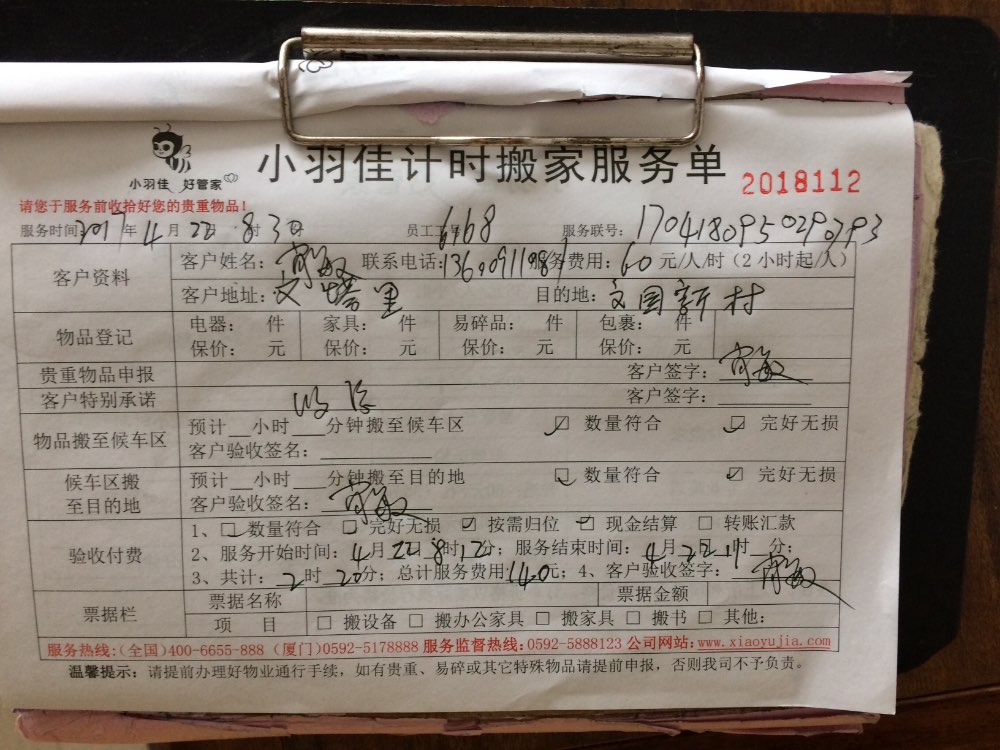 小羽佳 好管家
小羽佳计时搬家服务单 2018112
请您于服务前收拾好您的贵重物品！
服务时间 2017年4月22日 时 8 30 员工工号 6168 服务联号：1704180950290793
客户资料 客户姓名： 联系电话： 服务费用：60元/人/时（2小时起/人）
客户地址：文塔里 目的地：文园新村
物品登记 电器： 件 家具： 件 易碎品： 件 包裹： 件
保价： 元 保价： 元 保价： 元 保价： 元
贵重物品申报 客户签字：
客户特别承诺 客户签字：
物品搬至候车区 预计__小时___分钟搬至候车区 ☑ 数量符合 ☑ 完好无损
客户验收签名：
候车区搬至目的地 预计__小时___分钟搬至目的地 ☑ 数量符合 ☑ 完好无损
客户验收签名：
验收付费 1、☑数量符合 ☑完好无损 ☑按需归位 ☑现金结算 □转账汇款
2、服务开始时间：4月22日8时12分；服务结束时间：4月22日11时__分；
3、共计：2时20分；总计服务费用：140元；4、客户验收签字：
票据栏 票据名称 票据金额
项 目 □ 搬设备 □ 搬办公家具 □ 搬家具 □ 搬书 □ 其他：
服务热线：(全国)400-6655-888 (厦门)0592-5178888 服务监督热线：0592-5888123 公司网站：www.xiaoyujia.com
温馨提示：请提前办理好物业通行手续，如有贵重、易碎或其它特殊物品请提前申报，否则我司不予负责。